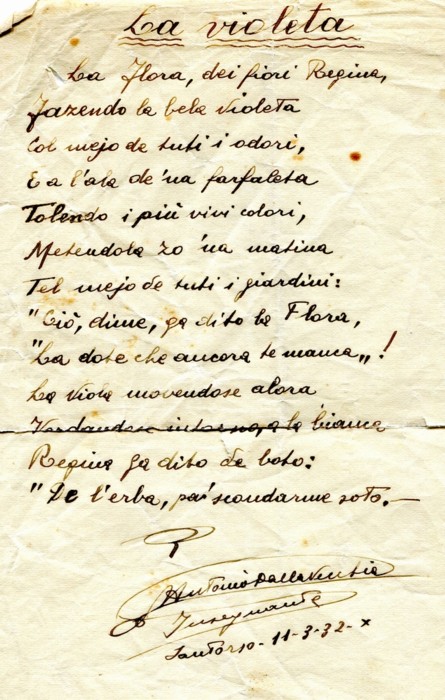 La violeta
La Flora, dei fiori Regina,
Fazendo la bela violeta
Col mejo de tuti i odori,
E a l'ala de 'na farfaleta
Tolendo i più vivi colori,
Metendola zo 'na matina
Tel mejo de tuti i giardini:
"Ciò, dime, ga dito la Flora,
"La dote che ancora te manca„!
La viola movendose alora
Vardandose intorno, a la bianca
Regina ga dito de boto:
"De l'erba, pa' scondarme soto.—
Antonio Dalla Vecchia
Insegnante
Santorso - 11-3-32-X